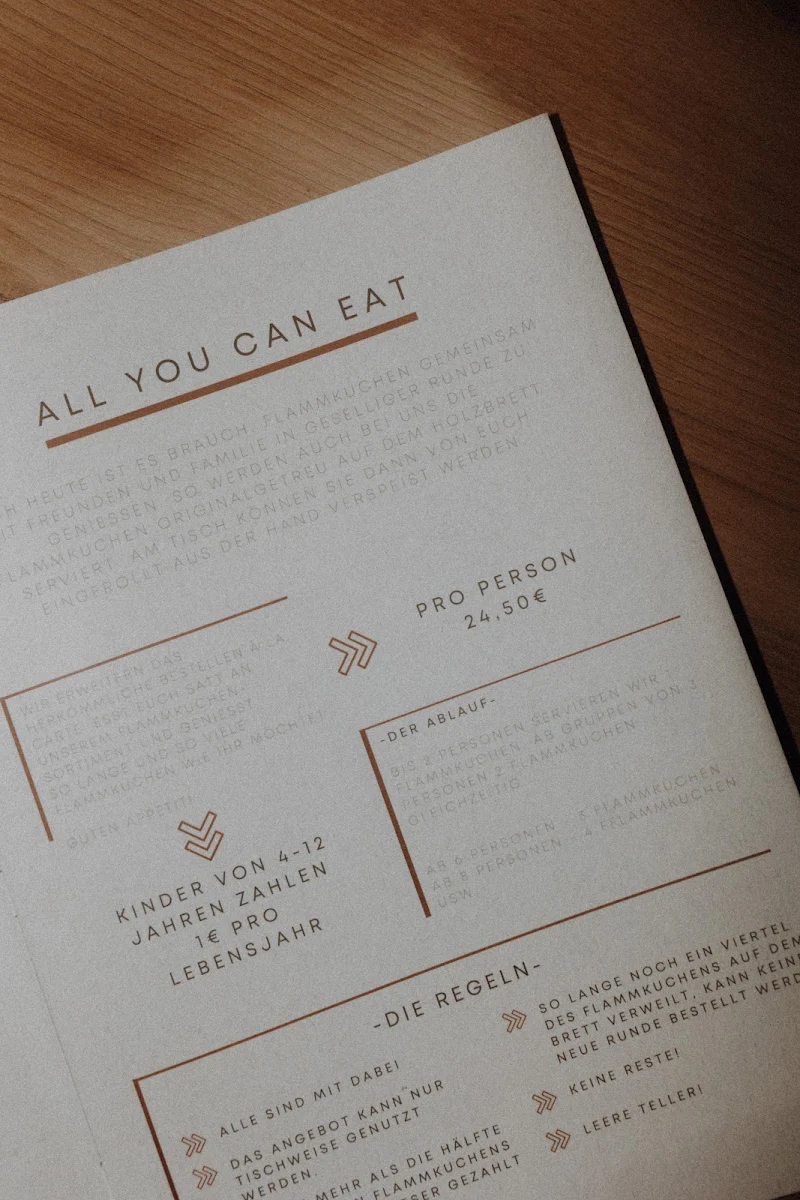 ALL YOU CAN EAT
HEUTE IST ES BRAUCH, FLAMMKUCHEN GEMEINSAM
FREUNDEN UND FAMILIE IN GESELLIGER RUNDE ZU
GENIESSEN. SO WERDEN AUCH BEI UNS DIE
FLAMMKUCHEN ORIGINALGETREU AUF DEM HOLZBRETT
SERVIERT. AM TISCH KÖNNEN SIE DANN VON EUCH
EINGEROLLT AUS DER HAND VERSPEIST WERDEN
PRO PERSON
24,50€
WIR ERWEITERN DAS
HERKÖMMLICHE BESTELLEN À LA
CARTE. ESST EUCH SATT AN
UNSEREM FLAMMKUCHEN-
SORTIMENT UND GENIESST
SO LANGE UND SO VIELE
FLAMMKUCHEN WIE IHR MÖCHTET
GUTEN APPETIT!
KINDER VON 4-12
JAHREN ZAHLEN
1€ PRO
LEBENSJAHR
-DER ABLAUF-
BIS 2 PERSONEN SERVIEREN WIR 1
FLAMMKUCHEN. AB GRUPPEN VON 3
PERSONEN 2 FLAMMKUCHEN
GLEICHZEITIG
AB 6 PERSONEN 3 FLAMMKUCHEN
AB 8 PERSONEN 4 FFLAMMKUCHEN
USW.
-DIE REGELN-
ALLE SIND MIT DABEI
DAS ANGEBOT KANN NUR
TISCHWEISE GENUTZT
WERDEN.
MEHR ALS DIE HÄLFTE
FLAMMKUCHENS
GEZAHLT
SO LANGE NOCH EIN VIERTEL
DES FLAMMKUCHENS AUF DEM
BRETT VERWEILT, KANN KEINE
NEUE RUNDE BESTELLT
KEINE RESTE!
LEERE TELLER!